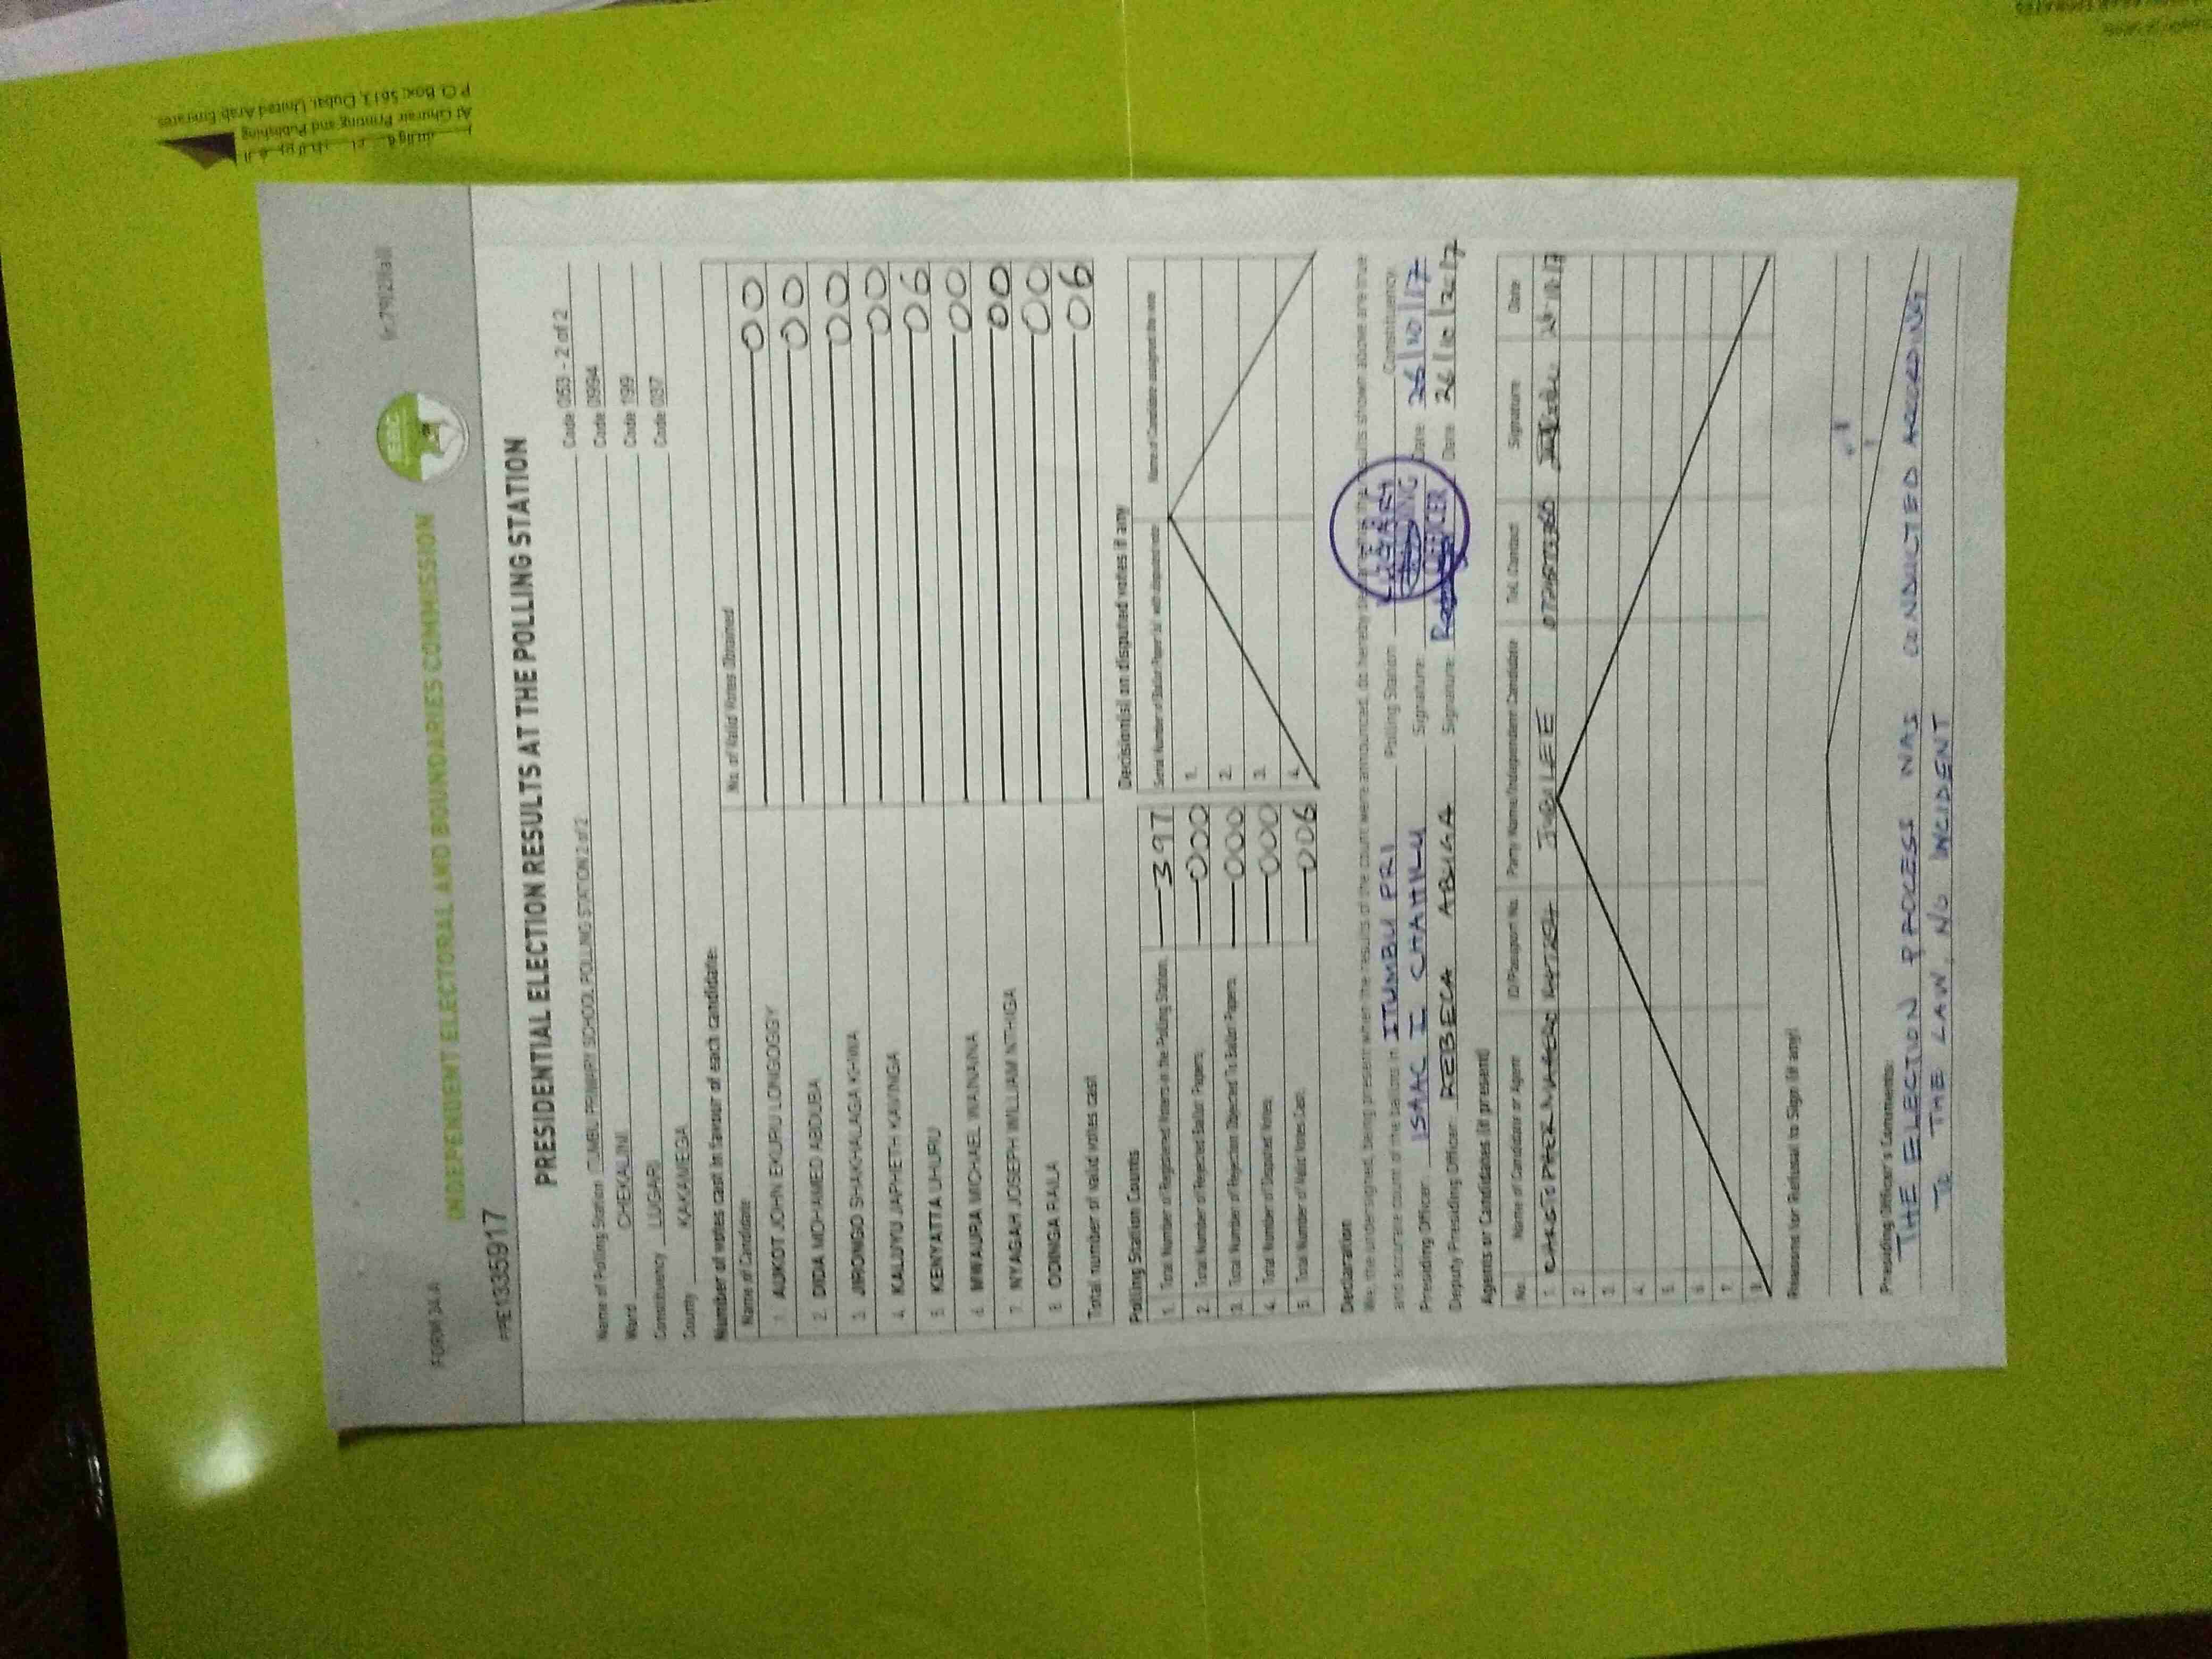 FORM 34 A
INDEPENDENT ELECTORAL AND BOUNDARIES COMMISSION
PRE13359117
PRESIDENTIAL ELECTION RESULTS AT THE POLLING STATION
Name of Polling Station ITUMBU PRIMARY SCHOOL POLLING STATION 2 of 2 Code 053 - 2 of 2
Ward CHEKALINI Code 0994
Constituency LUGARI Code 199
County KAKAMEGA Code 037
Number of votes cast in favour of each candidate:
Name of Candidate No. of Valid Votes Obtained
1. AUKOT JOHN EKURU LONGOGGY 00
2. DIDA MOHAMED ABDUBA 00
3. JIRONGO SHAKHALAGA KHWA 00
4. KALUYU JAPHETH KAVINGA 00
5. KENYATTA UHURU 06
6. MWAURA MICHAEL WAINAINA 00
7. NYAGAH JOSEPH WILLIAM NTHIGA 00
8. ODINGA RAILA 00
Total number of valid votes cast 06
Polling Station Counts
1. Total Number of Registered Voters in the Polling Station 397
2. Total Number of Rejected Ballot Papers 000
3. Total Number of Rejection Objected To Ballot Papers 000
4. Total Number of Disputed Votes 000
5. Total Number of Valid Votes Cast 006
Decision(s) on disputed votes if any
Serial Number of Ballot Paper (s) with disputed vote Name of Candidate assigned the vote
1.
2.
3.
4.
Declaration
We, the undersigned, being present when the results of the count were announced, do hereby declare that the results shown above are true
and accurate count of the ballots in ITUMBU PRI Polling Station Constituency
Presiding Officer: ISAAC I CHAHILU Signature: Date 26/10/17
Deputy Presiding Officer: REBECA ABUGA Signature: Date 26/10/2017
PRESIDING
OFFICER
Agents or Candidates (if present)
No. Name of Candidate or Agent ID/Passport No. Party Name/Independent Candidate Tel. Contact Signature Date
1. JUBILEE
2.
3.
4.
5.
6.
7.
8.
Reasons for Refusal to Sign (if any)
Presiding Officer's Comments:
THE ELECTION PROCESS WAS CONDUCTED ACCORDING
TO THE LAW, NO INCIDENT
Al Ghurair Printing and Publishing
P.O. Box: 5613, Dubai, United Arab Emirates